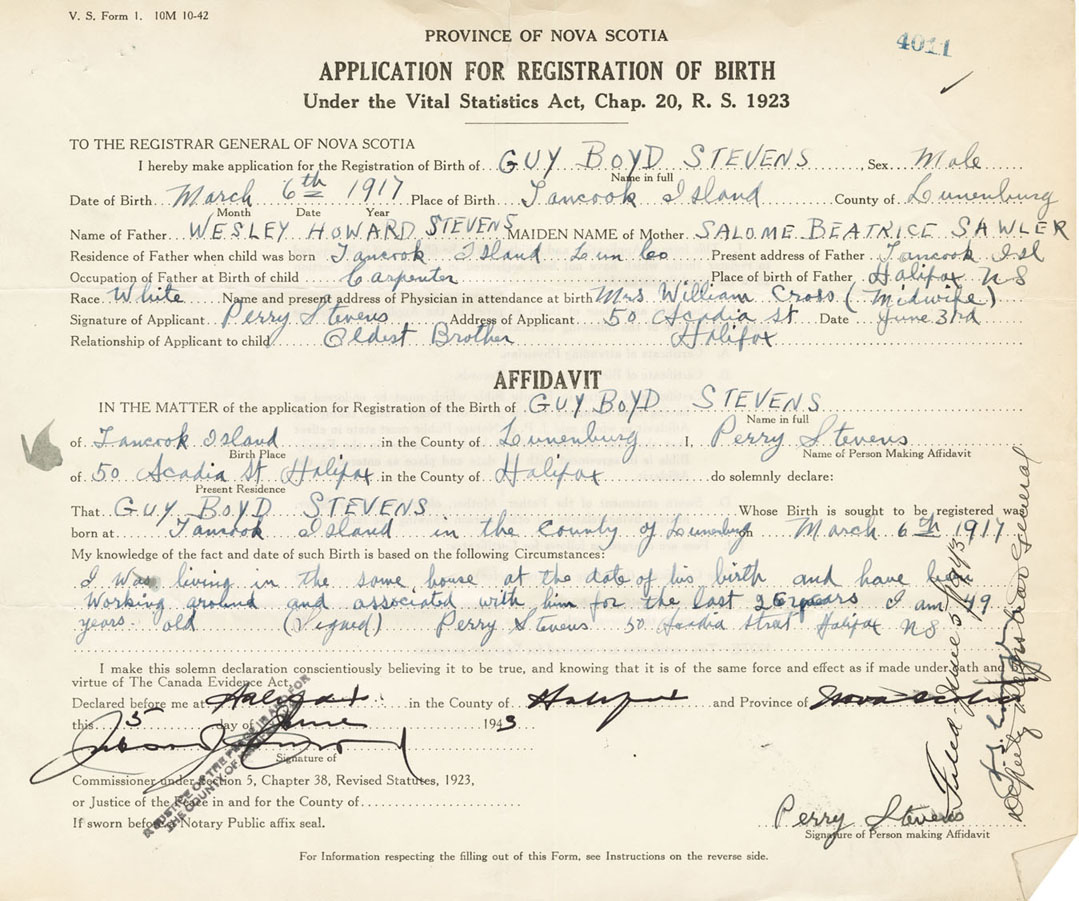 V. S. Form 1. 10M 10-42
PROVINCE OF NOVA SCOTIA
4011
APPLICATION FOR REGISTRATION OF BIRTH
Under the Vital Statistics Act, Chap. 20, R. S. 1923
TO THE REGISTRAR GENERAL OF NOVA SCOTIA
I hereby make application for the Registration of Birth of GUY BOYD STEVENS, Sex Male
Name in full
Date of Birth March 6th 1917 Place of Birth Tancook Island County of Lunenburg
Month Date Year
Name of Father WESLEY HOWARD STEVENS MAIDEN NAME of Mother SALOME BEATRICE SAWLER
Residence of Father when child was born Tancook Island Lun Co Present address of Father Tancook Isl
Occupation of Father at Birth of child Carpenter Place of birth of Father Halifax NS
Race White Name and present address of Physician in attendance at birth Mrs William Cross (Midwife)
Signature of Applicant Perry Stevens Address of Applicant 50 Acadia St Date June 3rd
Relationship of Applicant to child Oldest Brother Halifax
AFFIDAVIT
IN THE MATTER of the application for Registration of the Birth of GUY BOYD STEVENS
Name in full
of Tancook Island in the County of Lunenburg I, Perry Stevens
Birth Place Name of Person Making Affidavit
of 50 Acadia St Halifax in the County of Halifax do solemnly declare:
Present Residence
That GUY BOYD STEVENS Whose Birth is sought to be registered was
born at Tancook Island in the County of Lunenburg on March 6th 1917
My knowledge of the fact and date of such Birth is based on the following Circumstances:
I was living in the same house at the date of his birth and have been
Working around and associated with him for the last 26 years I am 49
years old (Signed) Perry Stevens 50 Acadia Street Halifax NS
I make this solemn declaration conscientiously believing it to be true, and knowing that it is of the same force and effect as if made under oath and
virtue of The Canada Evidence Act.
Declared before me at Halifax in the County of Halifax and Province of Nova Scotia
this 5 day of June 1943
Signature of
Commissioner under Section 5, Chapter 38, Revised Statutes, 1923,
or Justice of the Peace in and for the County of
If sworn before Notary Public affix seal.
A JUSTICE OF THE PEACE IN AND FOR
THE COUNTY OF
Perry Stevens
Signature of Person making Affidavit
Filed June 5 1943
Deputy Registrar General
For Information respecting the filling out of this Form, see Instructions on the reverse side.